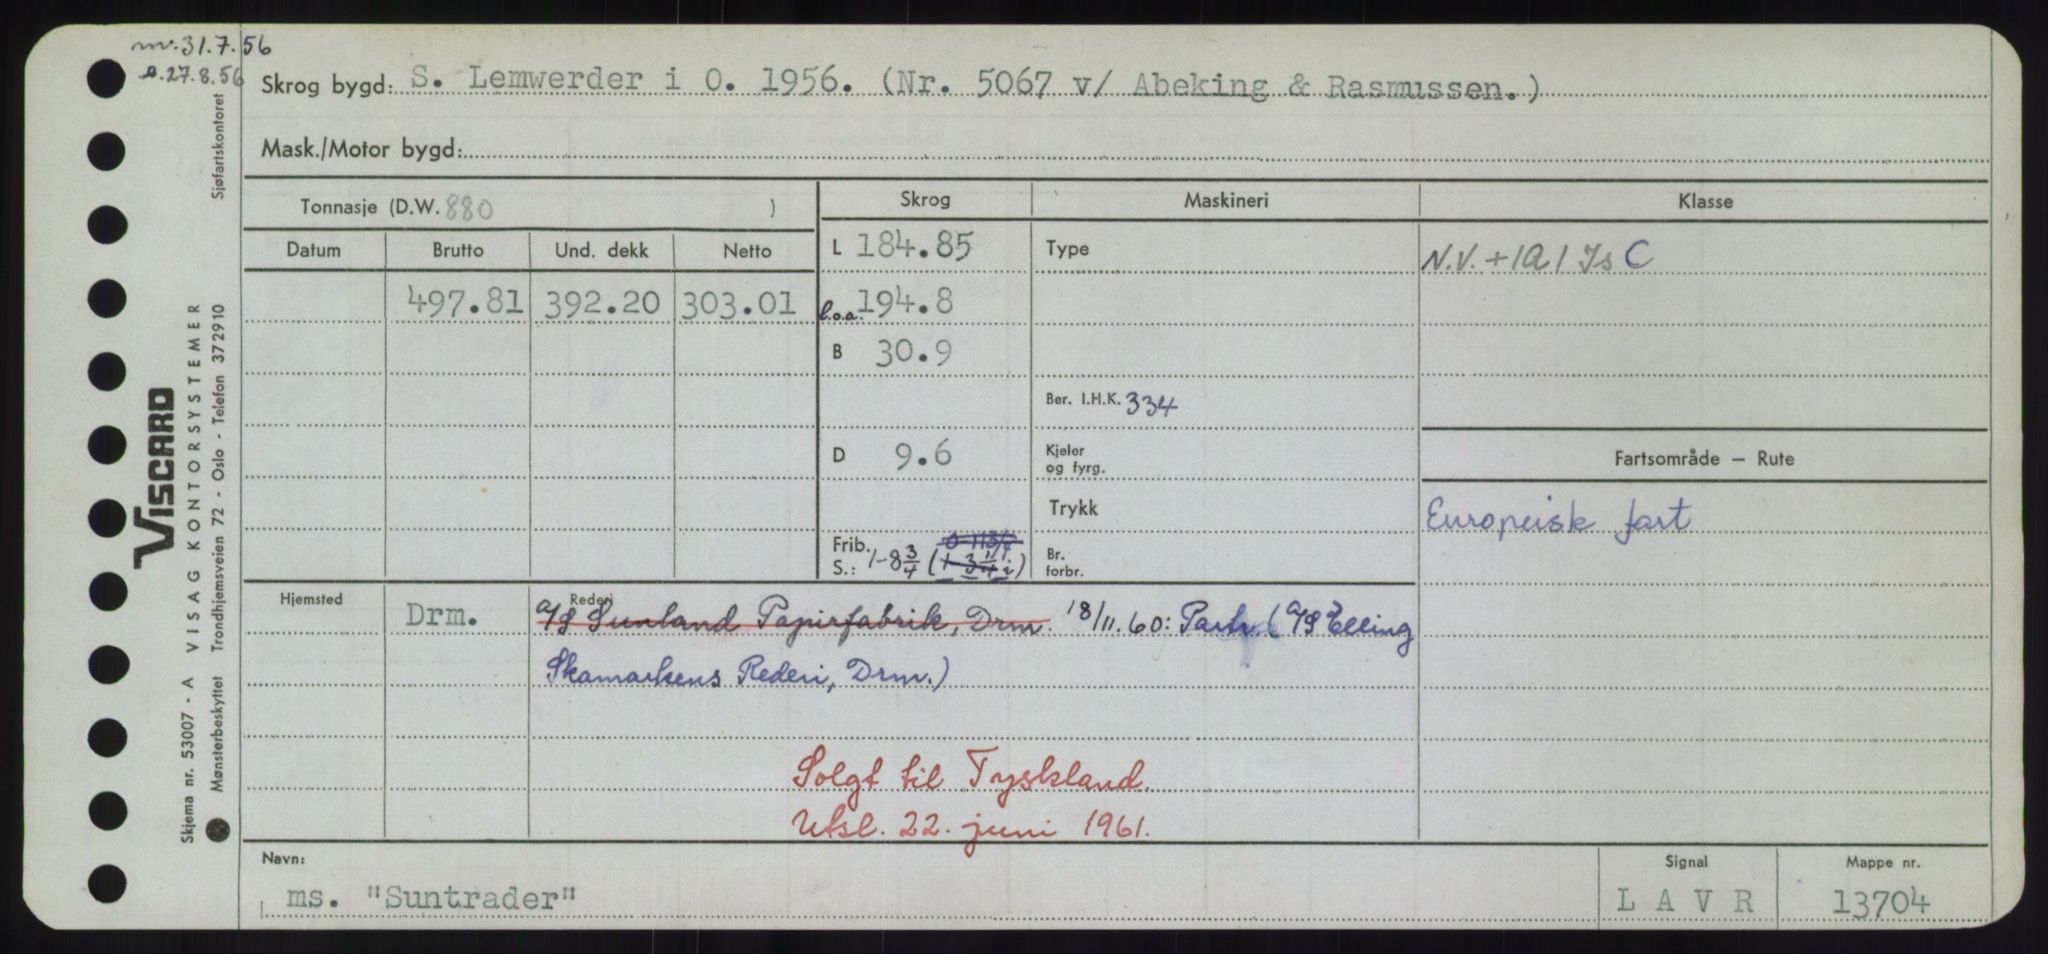 nv. 31.7.56
e. 27.8.56
Skrog bygd: S. Lemwerder i O. 1956. (Nr. 5067 v/ Abeking & Rasmussen.)
Mask./Motor bygd:
Tonnasje (D.W. 880 )
Datum Brutto Und. dekk Netto
497.81 392.20 303.01
Skrog
L 184.85
l.o.a. 194.8
B 30.9
D 9.6
Frib. 0-11 3/4
S.: 1-8 3/4 (1-3 1/4 i)
Maskineri
Type
Ber. I.H.K. 334
Kjeler
og fyrg.
Trykk
Br.
forbr.
Klasse
N.V. + 1A1 Is C
Fartsområde – Rute
Europeisk fart
Hjemsted Rederi
Drm. A/S Sunland Papirfabrik, Drm. 18/11.60: Partr. (A/S Elling
Skamarkens Rederi, Drm.)
Solgt til Tyskland.
Utsl. 22. juni 1961.
Navn: Signal Mappe nr.
ms. "Suntrader" L A V R 13704
Sjøfartskontoret
VISCARD
VISAG KONTORSYSTEMER
Trondhjemsveien 72 - Oslo - Telefon 372910
Skjema nr. 53007 - A
Mønsterbeskyttet